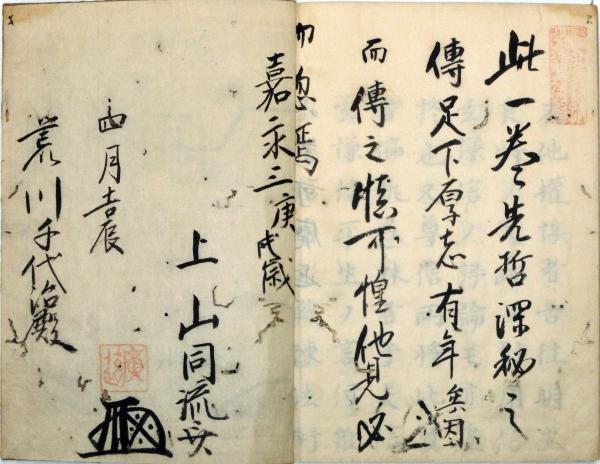 此一巻先哲深秘之
傳足下厚志有年矣因
而傳之慎不惶他見必
勿忽焉
嘉永三庚戌歳
四月吉辰
上山同流
荒川千代治殿